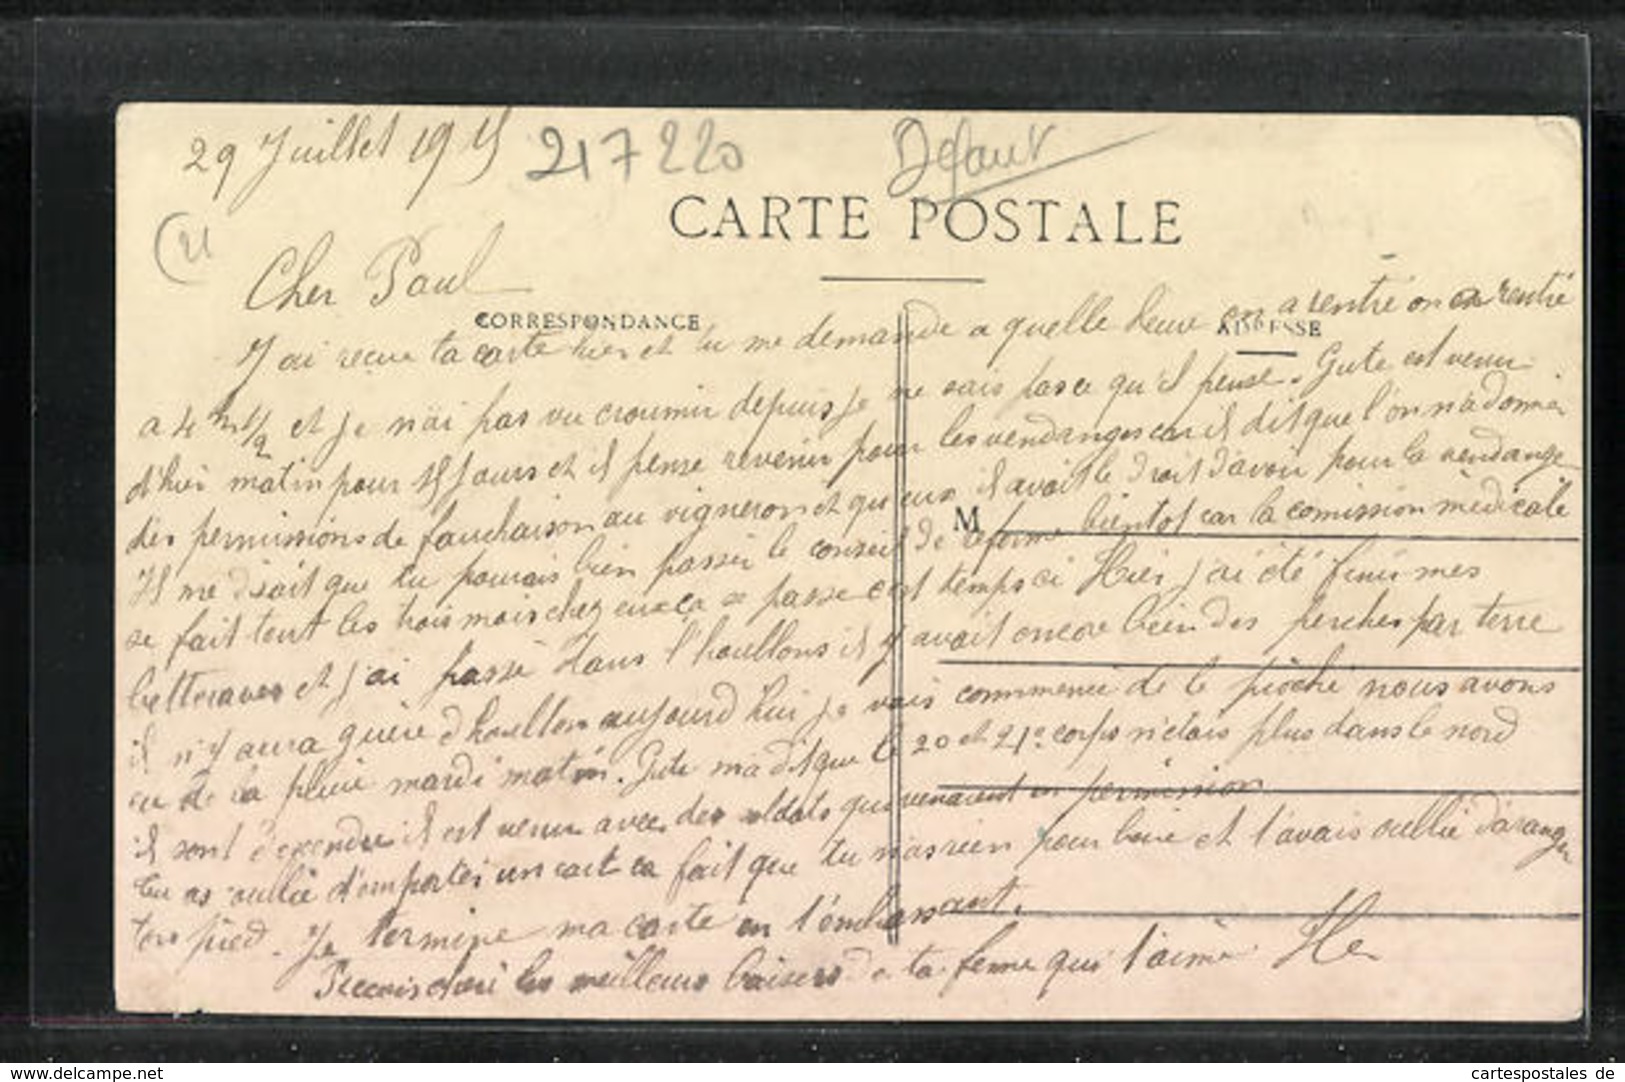 29 Juillet 1915 217220 Defaut
(21
CARTE POSTALE
Cher Paul
CORRESPONDANCE
ADRESSE
J ai reçue ta carte hier et tu me demande a quelle heure on a rentré on a rentré
a 4 h 1/2 et je n'ai pas vu croumir depuis je ne sais pas ce qu'il pense. Gute est venu
d'hier matin pour Jours et il pense revenir pour les vendanges car il dit que l'on n'a donner
des permissions de fauchaison au vigneron et qu eux il avait le droit d'avoir pour la vendange
M
Il me disait que tu pourrais bien passer le conseil de reforme bientot car la comission médicale
se fait tout les trois mois chez eux ca se passe c'est temps ci Hier j'ai été finir mes
betteraves et j'ai passé dans l'houllons il y avait encore bien des perches par terre
il n'y aura guère d'houllon aujourd hui je vais commencé de le pioché nous avons
eu de la pluie mardi matin. Gute ma dit que le 20 et 21e corps n'etais plus dans le nord
il sont descendu il est venu avec des soldats qui venaient en permission
tu as oullié d'emporter un cart ca fait que tu n'as rien pour boire et t'avais oullié d'aranger
ton pied. Je termine ma carte en t'embrassant.
Recois cheri les meilleurs baisers de ta femme qui t'aime He
www.delcampe.net
cartespostales de